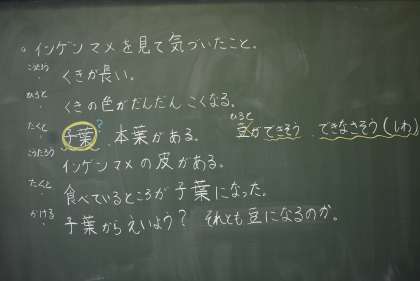 ○インゲンマメを見て気づいたこと。
くきが長い。
ひろと
くきの色がだんだんこくなる。
たくと
子葉?本葉がある。
ひろと
豆ができそう できなさそう(しわ)
こうたろう
インゲンマメの皮がある。
たくと
食べているところが子葉になった。
かける
子葉からえいよう? それとも豆になるのか。